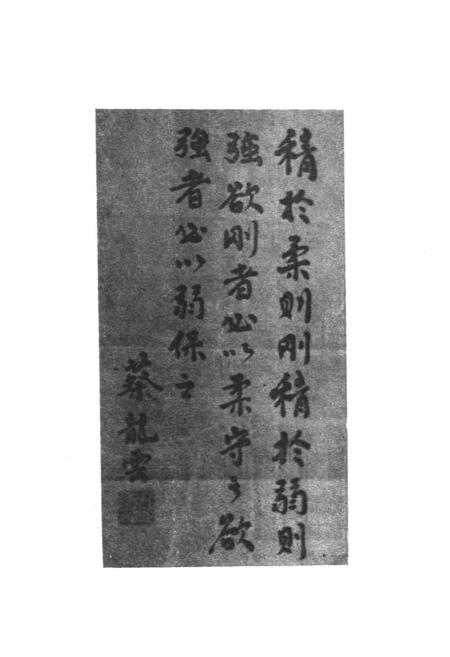 積於柔則剛積於弱則
強欲剛者必以柔守之欲
強者必以弱保之
蔡龍雲